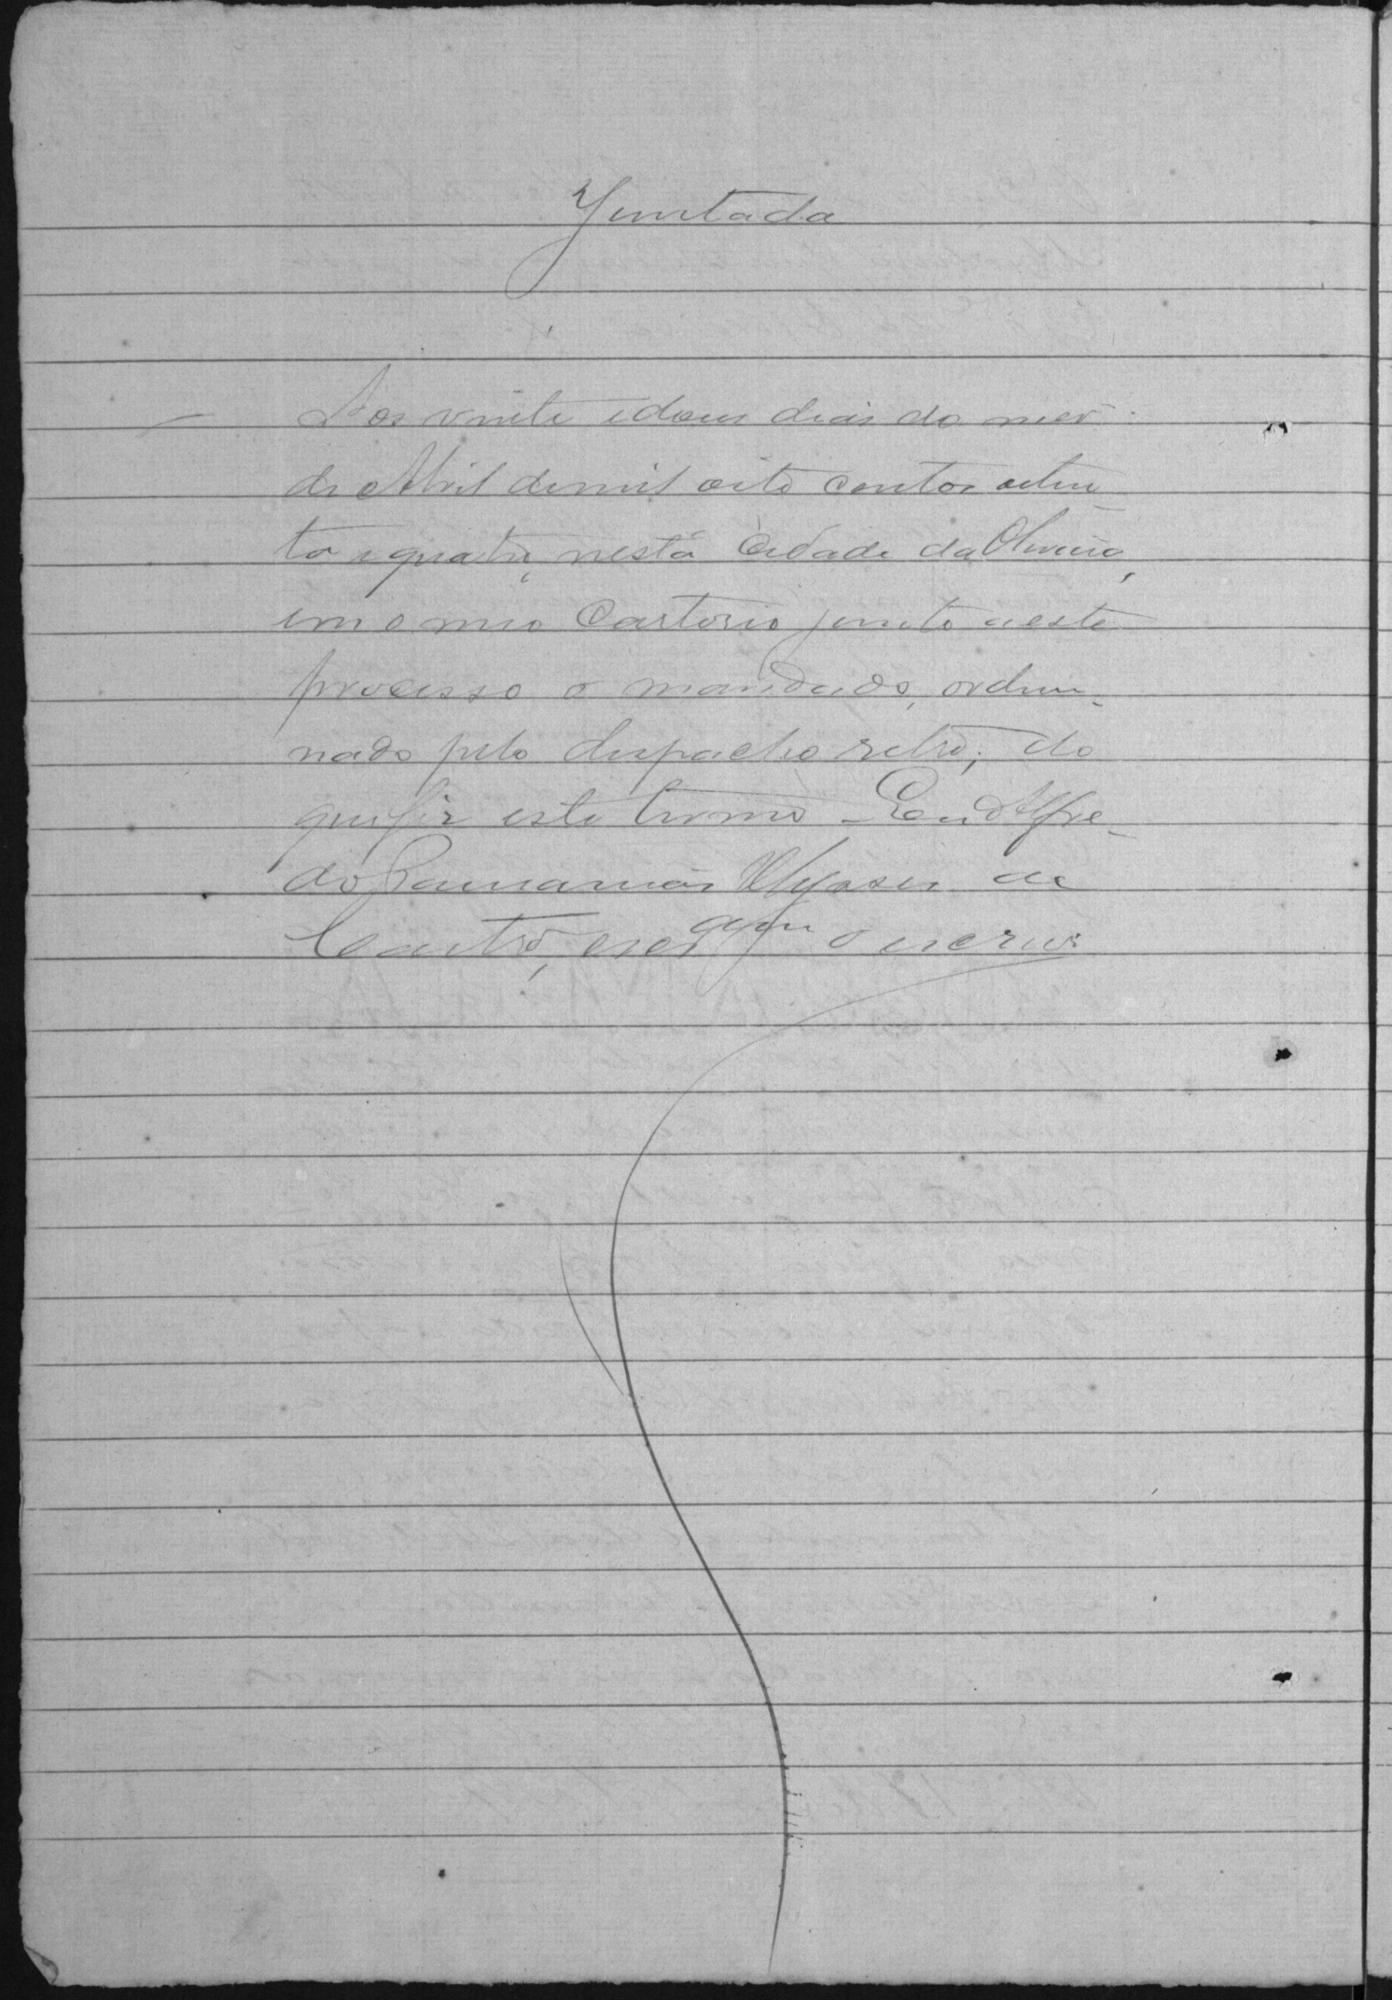 Juntada
Aos vinte e dous dias do mez
de Abril de mil oito centos oiten-
ta e quatro, nesta Cidade da Oliveira,
em o meo Cartorio junto a este
processo o mandado, orden-
nado pelo despacho retro; do
que fiz este termo. Eu Alfre-
do Ulysses de
Castro, escrivão o escrevi